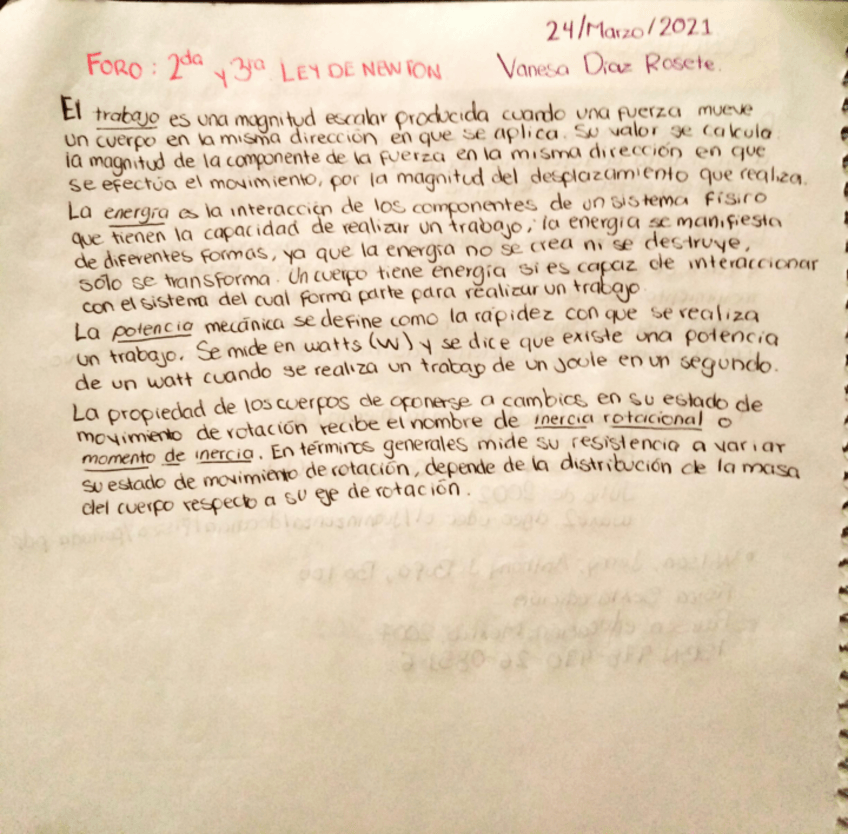 24/Marzo/2021
FORO: 2da y 3ra LEY DE NEWTON Vanesa Diaz Rosete.
El trabajo es una magnitud escalar producida cuando una fuerza mueve
un cuerpo en la misma dirección en que se aplica. Su valor se calcula
la magnitud de la componente de la fuerza en la misma dirección en que
se efectúa el movimiento, por la magnitud del desplazamiento que realiza.
La energía es la interacción de los componentes de un sistema físiro
que tienen la capacidad de realizar un trabajo, la energía se manifiesta
de diferentes formas, ya que la energía no se crea ni se destruye,
sólo se transforma. Un cuerpo tiene energía si es capaz de interaccionar
con el sistema del cual forma parte para realizar un trabajo.
La potencia mecánica se define como la rapidez con que se realiza
un trabajo. Se mide en watts (W) y se dice que existe una potencia
de un watt cuando se realiza un trabajo de un joule en un segundo.
La propiedad de los cuerpos de oponerse a cambios en su estado de
movimiento de rotación recibe el nombre de inercia rotacional o
momento de inercia. En términos generales mide su resistencia a variar
su estado de movimiento de rotación, depende de la distribución de la masa
del cuerpo respecto a su eje de rotación.